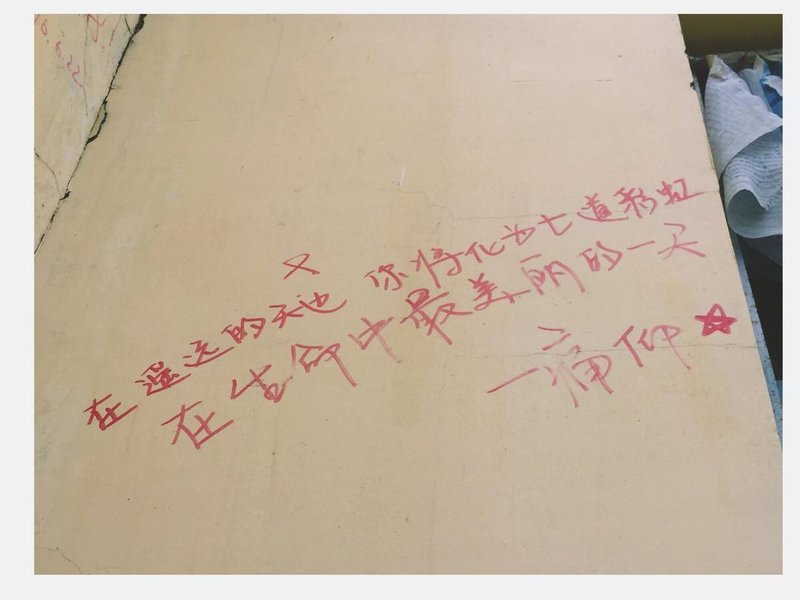 在遥远的天也 你将化为七道彩虹
在生命中最美丽的一天
一痛仰☆